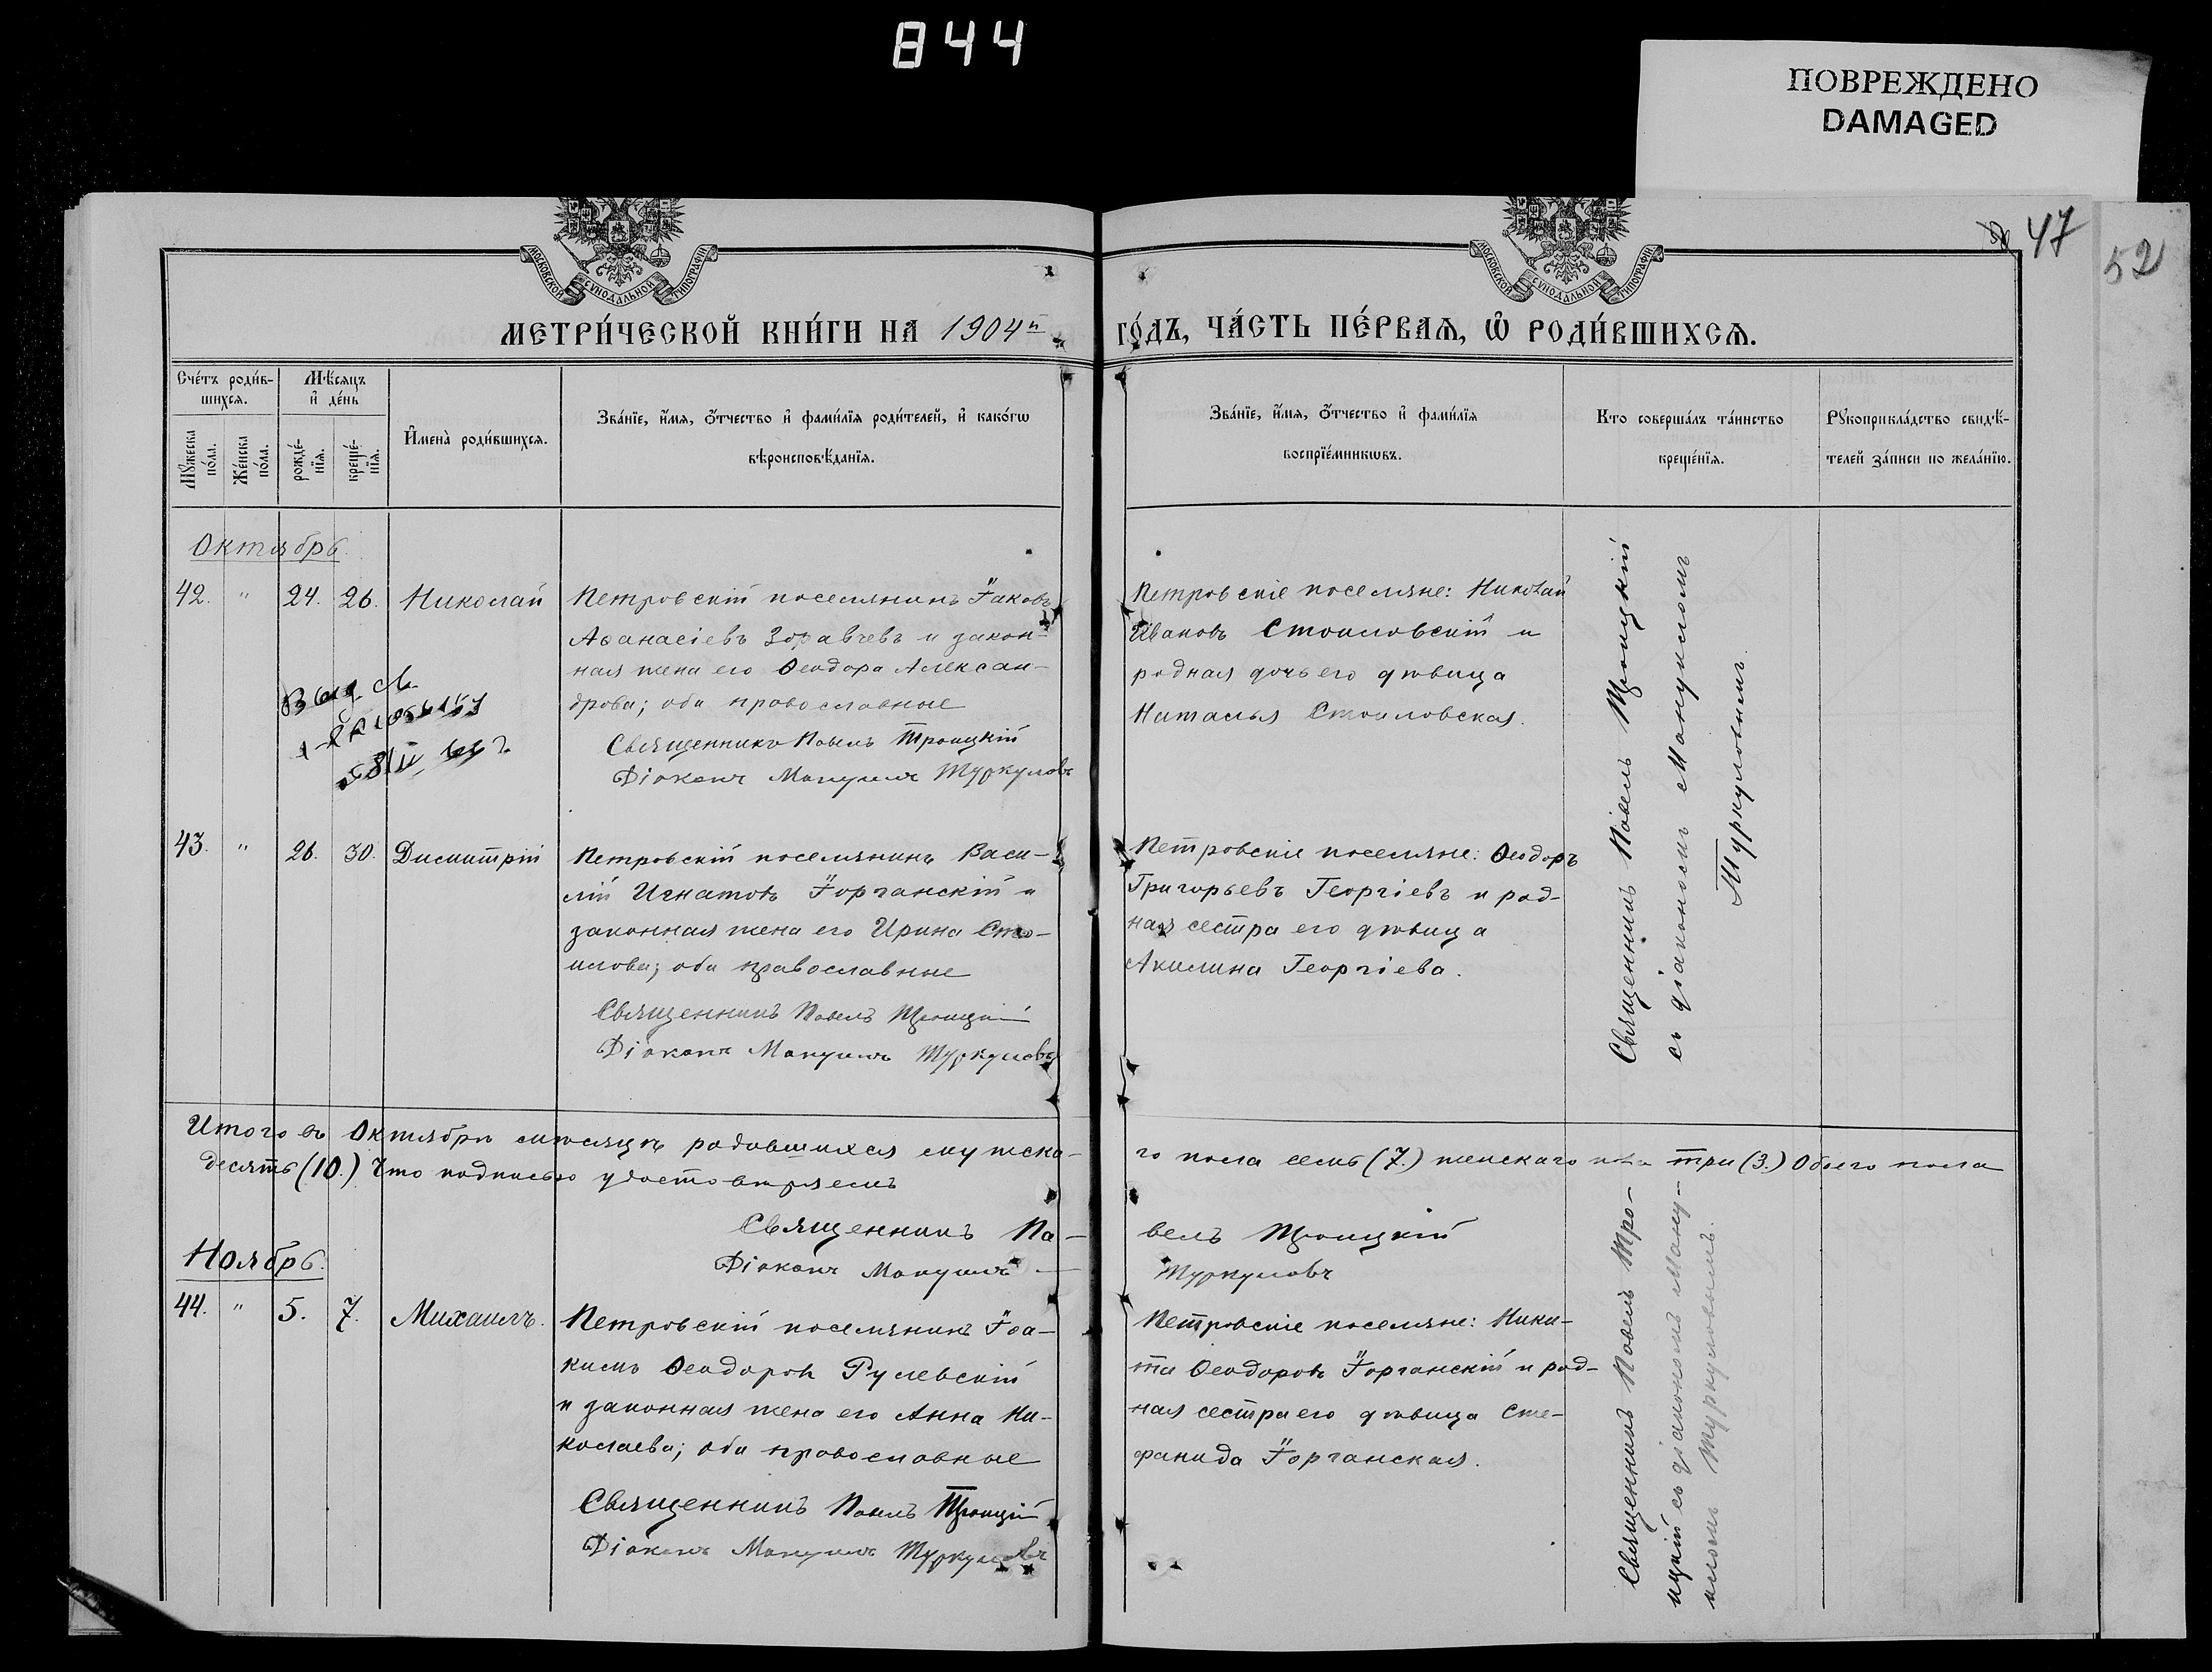 844
ПОВРЕЖДЕНО
DAMAGED
47
52
МОСКОВСКОЙ СѴНОДАЛЬНОЙ ТИПОГРАФІИ
МОСКОВСКОЙ СѴНОДАЛЬНОЙ ТИПОГРАФІИ
МЕТРИ́ЧЕСКОЙ КНИ́ГИ НА 1904й
ГО́ДЪ, ЧА́СТЬ ПЕ́РВАѦ, Ѽ РОДИ́ВШИХСѦ.
Сче́тъ роди́в-
шихсѧ.
Мꙋ́жеска
по́ла.
Же́нска
по́ла.
Мѣ́сѧцъ
и҆ де́нь
рожде́-
нїѧ.
креще́-
нїѧ.
И҆мена̀ роди́вшихсѧ.
Зва́нїе, и҆́мѧ, ѻ҆́тчество и҆ фами́лїѧ роди́телей, и҆ како́гѡ
вѣроисповѣ́данїѧ.
Зва́нїе, и҆́мѧ, ѻ҆́тчество и҆ фами́лїѧ
воспрїе́мникѡвъ.
Кто соверша́лъ та́инство
креще́нїѧ.
Рꙋкоприкла́дство свидѣ́-
телей за́писи по жела́нїю.
Октябрь.
42. " 24. 26. Николай
Петровскій поселянинъ Іаковъ
Аѳанасіевъ Здравчевъ и закон-
ная жена его Ѳеодора Алексан-
дрова; оба православные
Священникъ Павелъ Троицкій
Діаконъ Мануилъ Туркуловъ
Петровскіе поселяне: Николай
Ивановъ Стоиловскій и
родная дочь его дѣвица
Наталья Стоиловская.
Священникъ Павелъ Троицкій
съ діакономъ Мануиломъ
Туркуловымъ.
43. " 26. 30. Димитрій
Петровскій поселянинъ Васи-
лій Игнатовъ Іорганскій и
законная жена его Ирина Сто-
илова; оба православные
Священникъ Павелъ Троицкій
Діаконъ Мануилъ Туркуловъ
Петровскіе поселяне: Ѳеодоръ
Григорьевъ Георгіевъ и род-
ная сестра его дѣвица
Акилина Георгіева.
Итого въ Октябрѣ мѣсяцѣ родившихся мужска-
го пола семь (7.) женскаго пола три (3.) Обоего пола
десять (10.) Что подписью удостовѣряемъ
Священникъ Па-
велъ Троицкій
Діаконъ Мануилъ
Туркуловъ
Ноябрь.
44. " 5. 7. Михаилъ.
Петровскій поселянинъ Іоа-
кимъ Ѳеодоровъ Рулевскій
и законная жена его Анна Ни-
колаева; оба православные
Священникъ Павелъ Троицкій
Діаконъ Мануилъ Туркуловъ
Петровскіе поселяне: Ники-
та Ѳеодоровъ Іорганскій и род-
ная сестра его дѣвица Сте-
фанида Іорганская.
Священникъ Павелъ Тро-
ицкій съ діакономъ Ману-
иломъ Туркуловымъ.